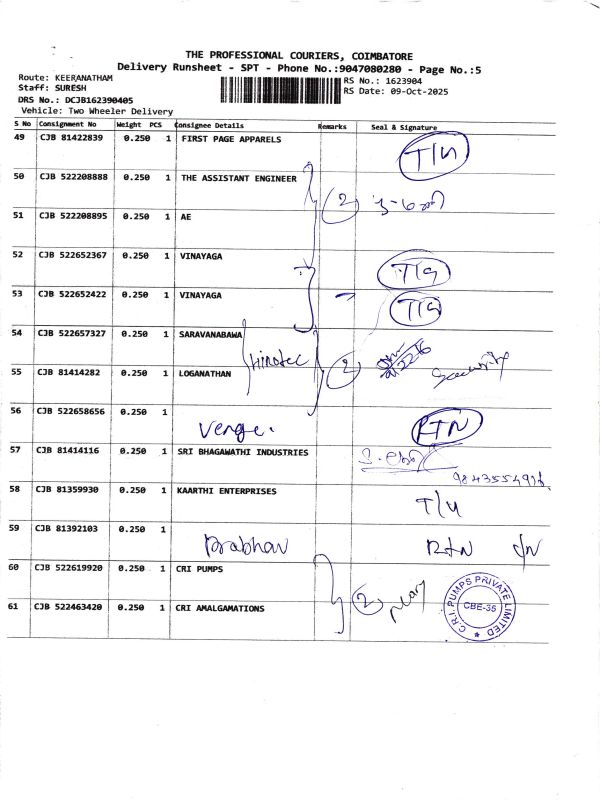 THE PROFESSIONAL COURIERS, COIMBATORE
Delivery Runsheet - SPT - Phone No.:9047080280 - Page No.:5
Route: KEERANATHAM
RS No.: 1623904
Staff: SURESH
RS Date: 09-Oct-2025
DRS No.: DCJB162390405
Vehicle: Two Wheeler Delivery
S No Consignment No Weight PCS Consignee Details Remarks Seal & Signature
49 CJB 81422839 0.250 1 FIRST PAGE APPARELS T/U
50 CJB 522208888 0.250 1 THE ASSISTANT ENGINEER 2
51 CJB 522208895 0.250 1 AE
52 CJB 522652367 0.250 1 VINAYAGA T/G
53 CJB 522652422 0.250 1 VINAYAGA T/G
54 CJB 522657327 0.250 1 SARAVANABAWA
Hirotec 2
55 CJB 81414282 0.250 1 LOGANATHAN Security
56 CJB 522658656 0.250 1
RTN
57 CJB 81414116 0.250 1 SRI BHAGAWATHI INDUSTRIES
58 CJB 81359930 0.250 1 KAARTHI ENTERPRISES T/U
59 CJB 81392103 0.250 1
Prabhav RTN
60 CJB 522619920 0.250 1 CRI PUMPS
2
61 CJB 522463420 0.250 1 CRI AMALGAMATIONS
C.R.I. PUMPS PRIVATE LIMITED
CBE-35